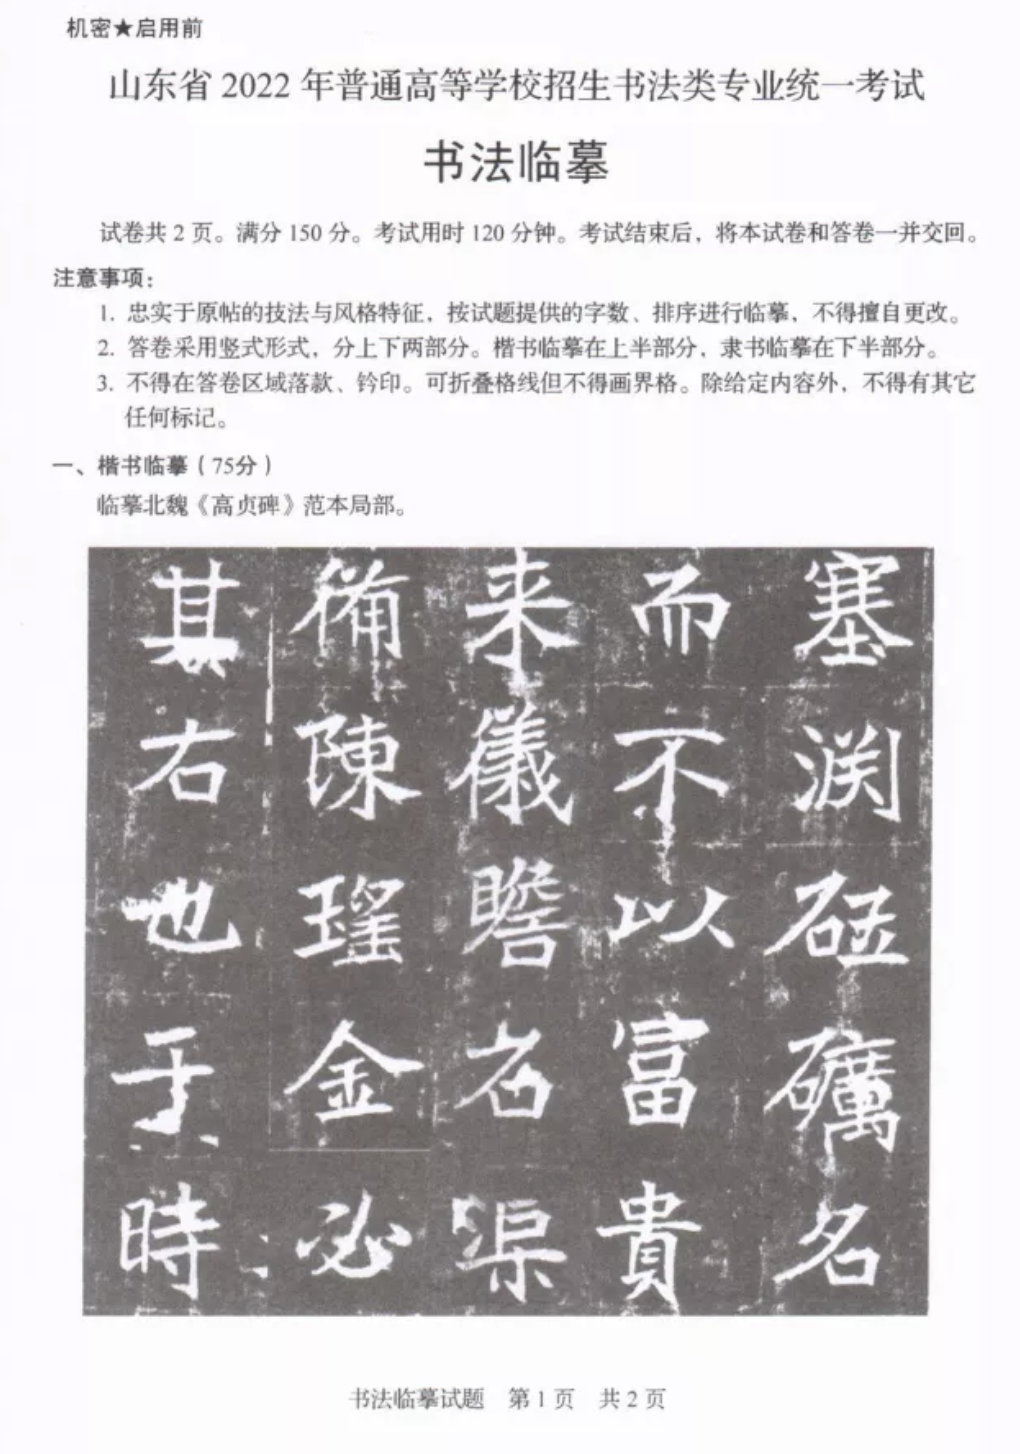 机密★启用前
山东省 2022 年普通高等学校招生书法类专业统一考试
书法临摹
试卷共 2 页。满分 150 分。考试用时 120 分钟。考试结束后，将本试卷和答卷一并交回。
注意事项：
1. 忠实于原帖的技法与风格特征，按试题提供的字数、排序进行临摹，不得擅自更改。
2. 答卷采用竖式形式，分上下两部分。楷书临摹在上半部分，隶书临摹在下半部分。
3. 不得在答卷区域落款、钤印。可折叠格线但不得画界格。除给定内容外，不得有其它
任何标记。
一、楷书临摹（75分）
临摹北魏《高贞碑》范本局部。
塞渊砡礪名
而不以富貴
来儀瞻名渠
備陳瑤金必
其右也于時
书法临摹试题　第 1 页　共 2 页